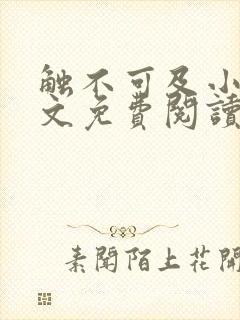 触不可及小
文免費閱讀
素聞陌上花開